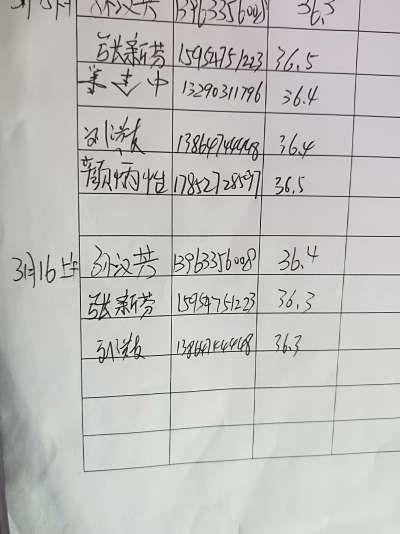 13963356008 36.3
张新芳 15954751223 36.5
13290311796 36.4
13864744448 36.4
颜炳恒 17852728597 36.5
3月16 孙汉共 13963356008 36.4
张新芳 15954751223 36.3
13864744448 36.3